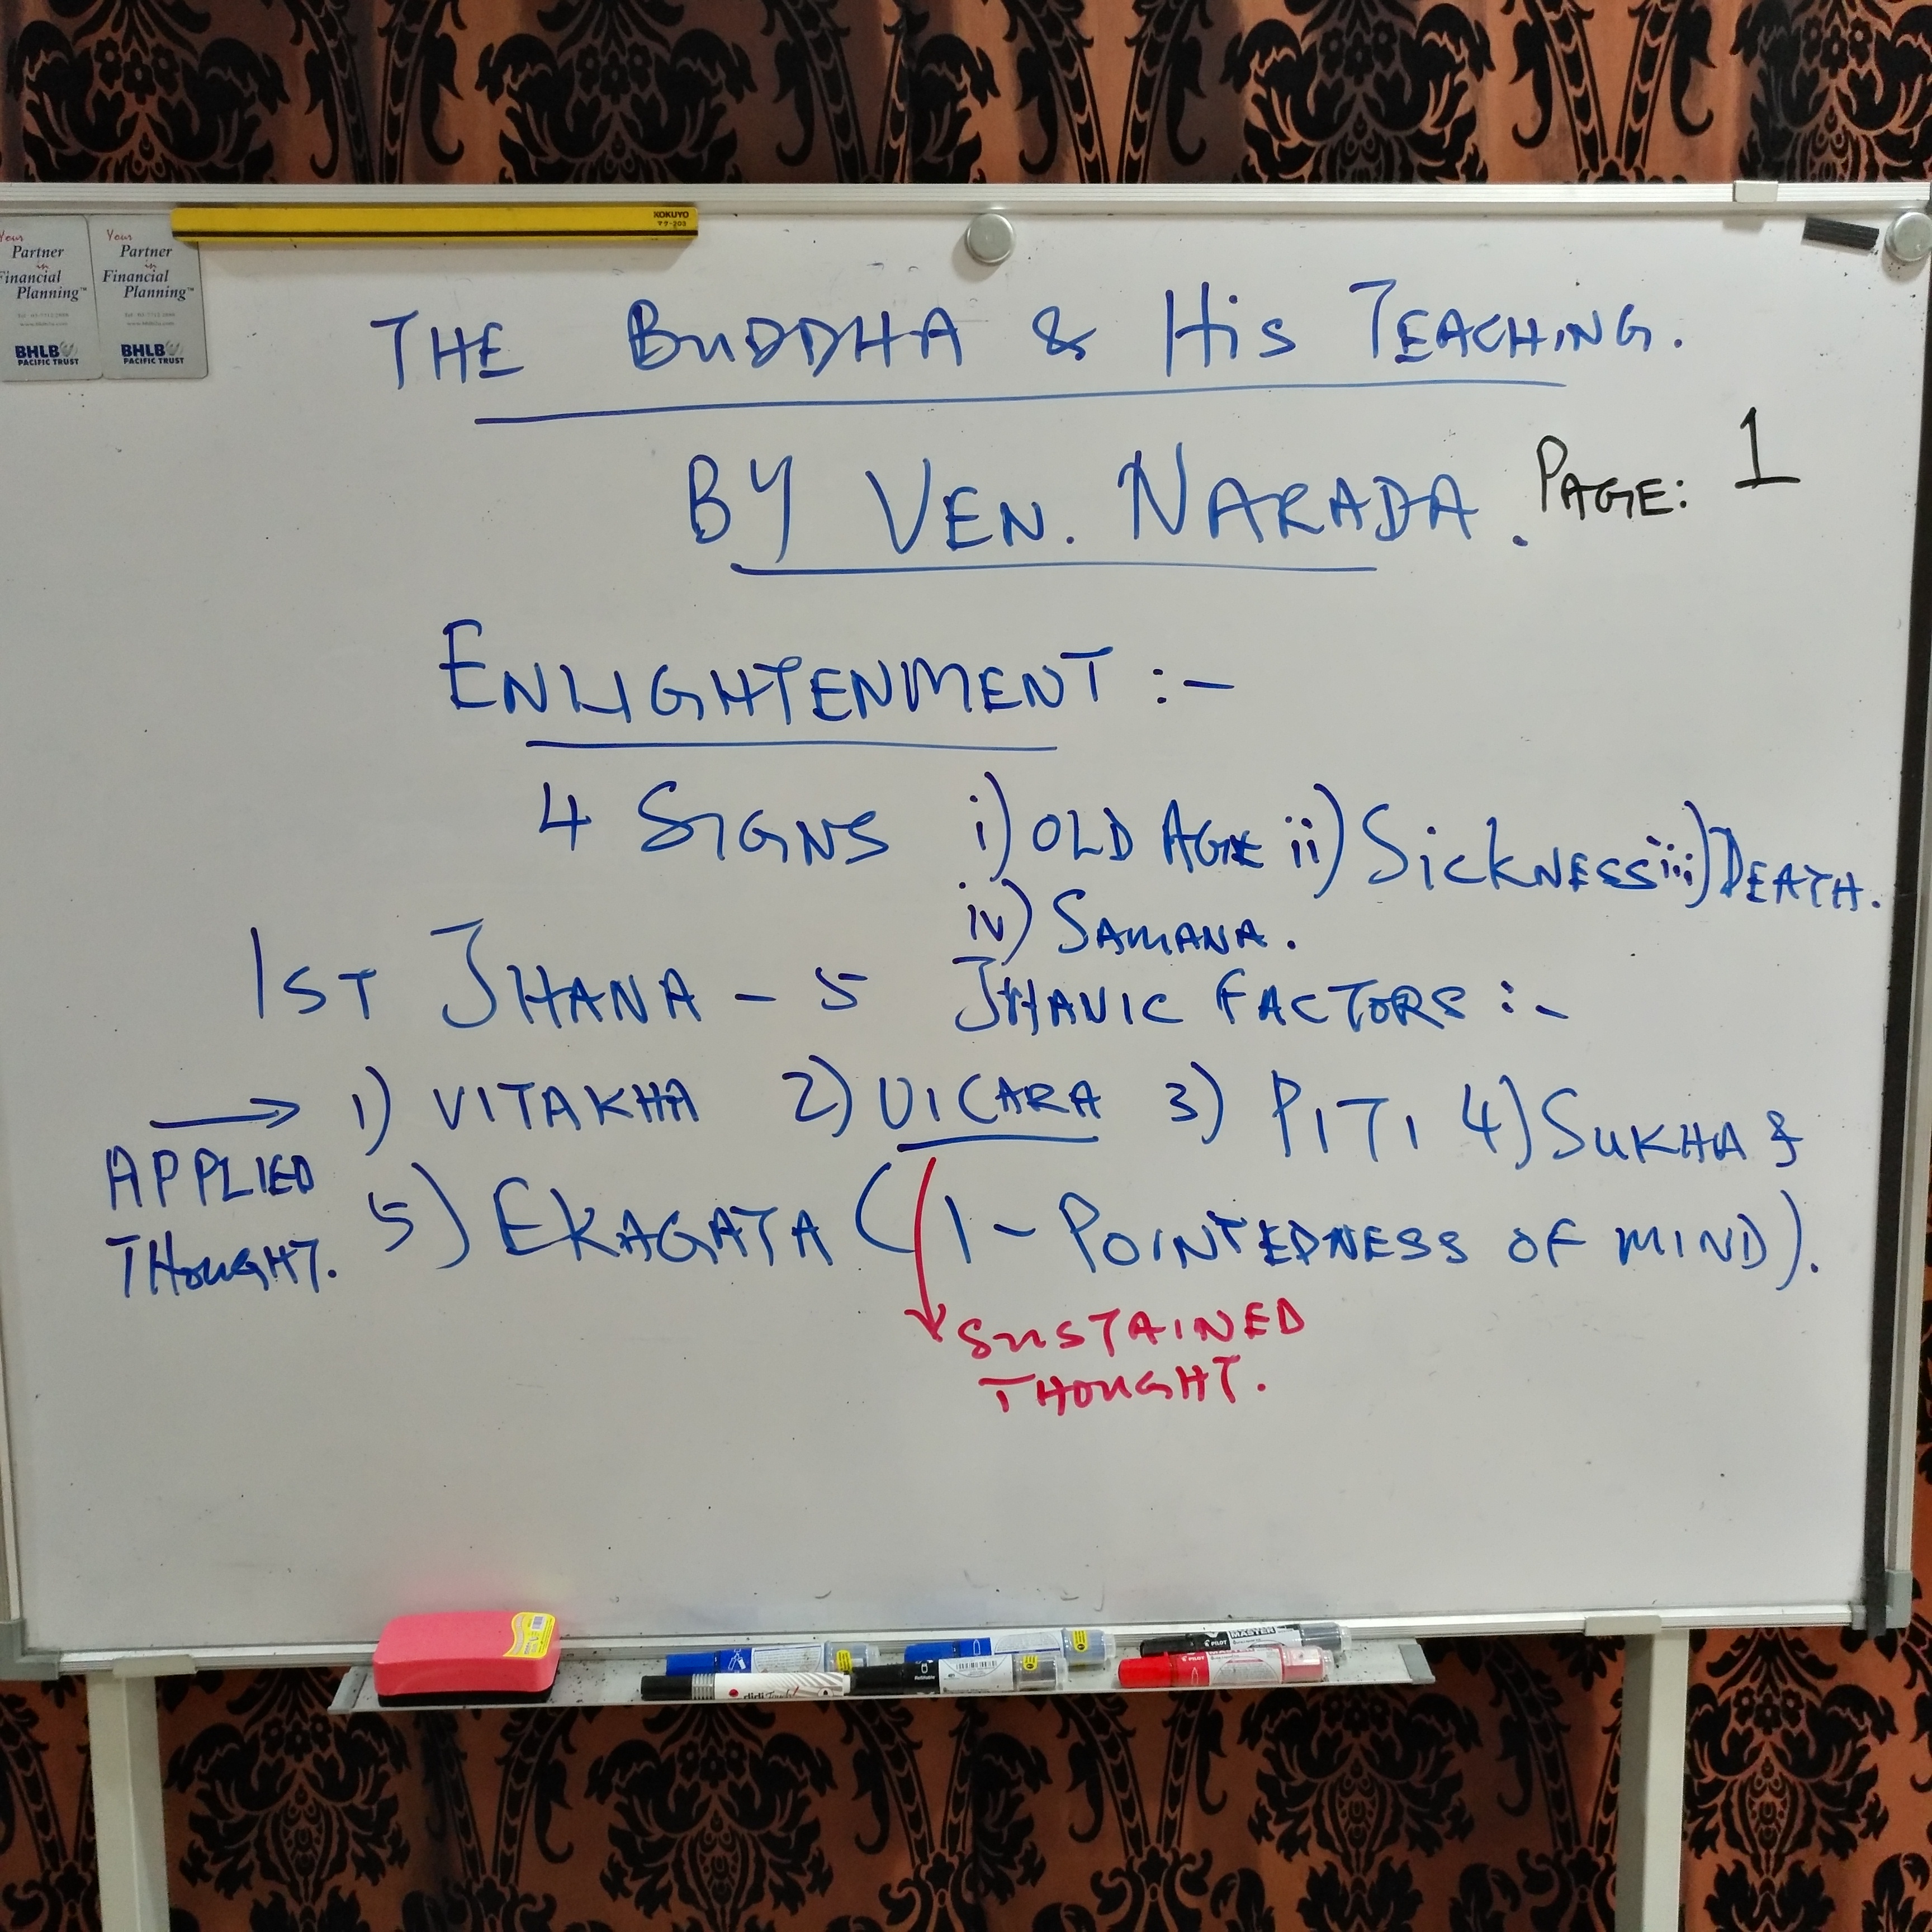 KOKUYO
Your
Partner
in
Financial
Planning™
BHLB
PACIFIC TRUST
Your
Partner
in
Financial
Planning™
BHLB
PACIFIC TRUST
THE BUDDHA & HIS TEACHING.
BY VEN. NARADA. PAGE: 1
ENLIGHTENMENT :-
4 SIGNS i) OLD AGE ii) SICKNESS iii) DEATH.
iv) SAMANA.
1ST JHANA - 5 JHANIC FACTORS :-
→ 1) VITAKHA 2) VICARA 3) PITI 4) SUKHA &
APPLIED
THOUGHT.
5) EKAGATA (1-POINTEDNESS OF MIND).
SUSTAINED
THOUGHT.
MASTER
PILOT
PILOT